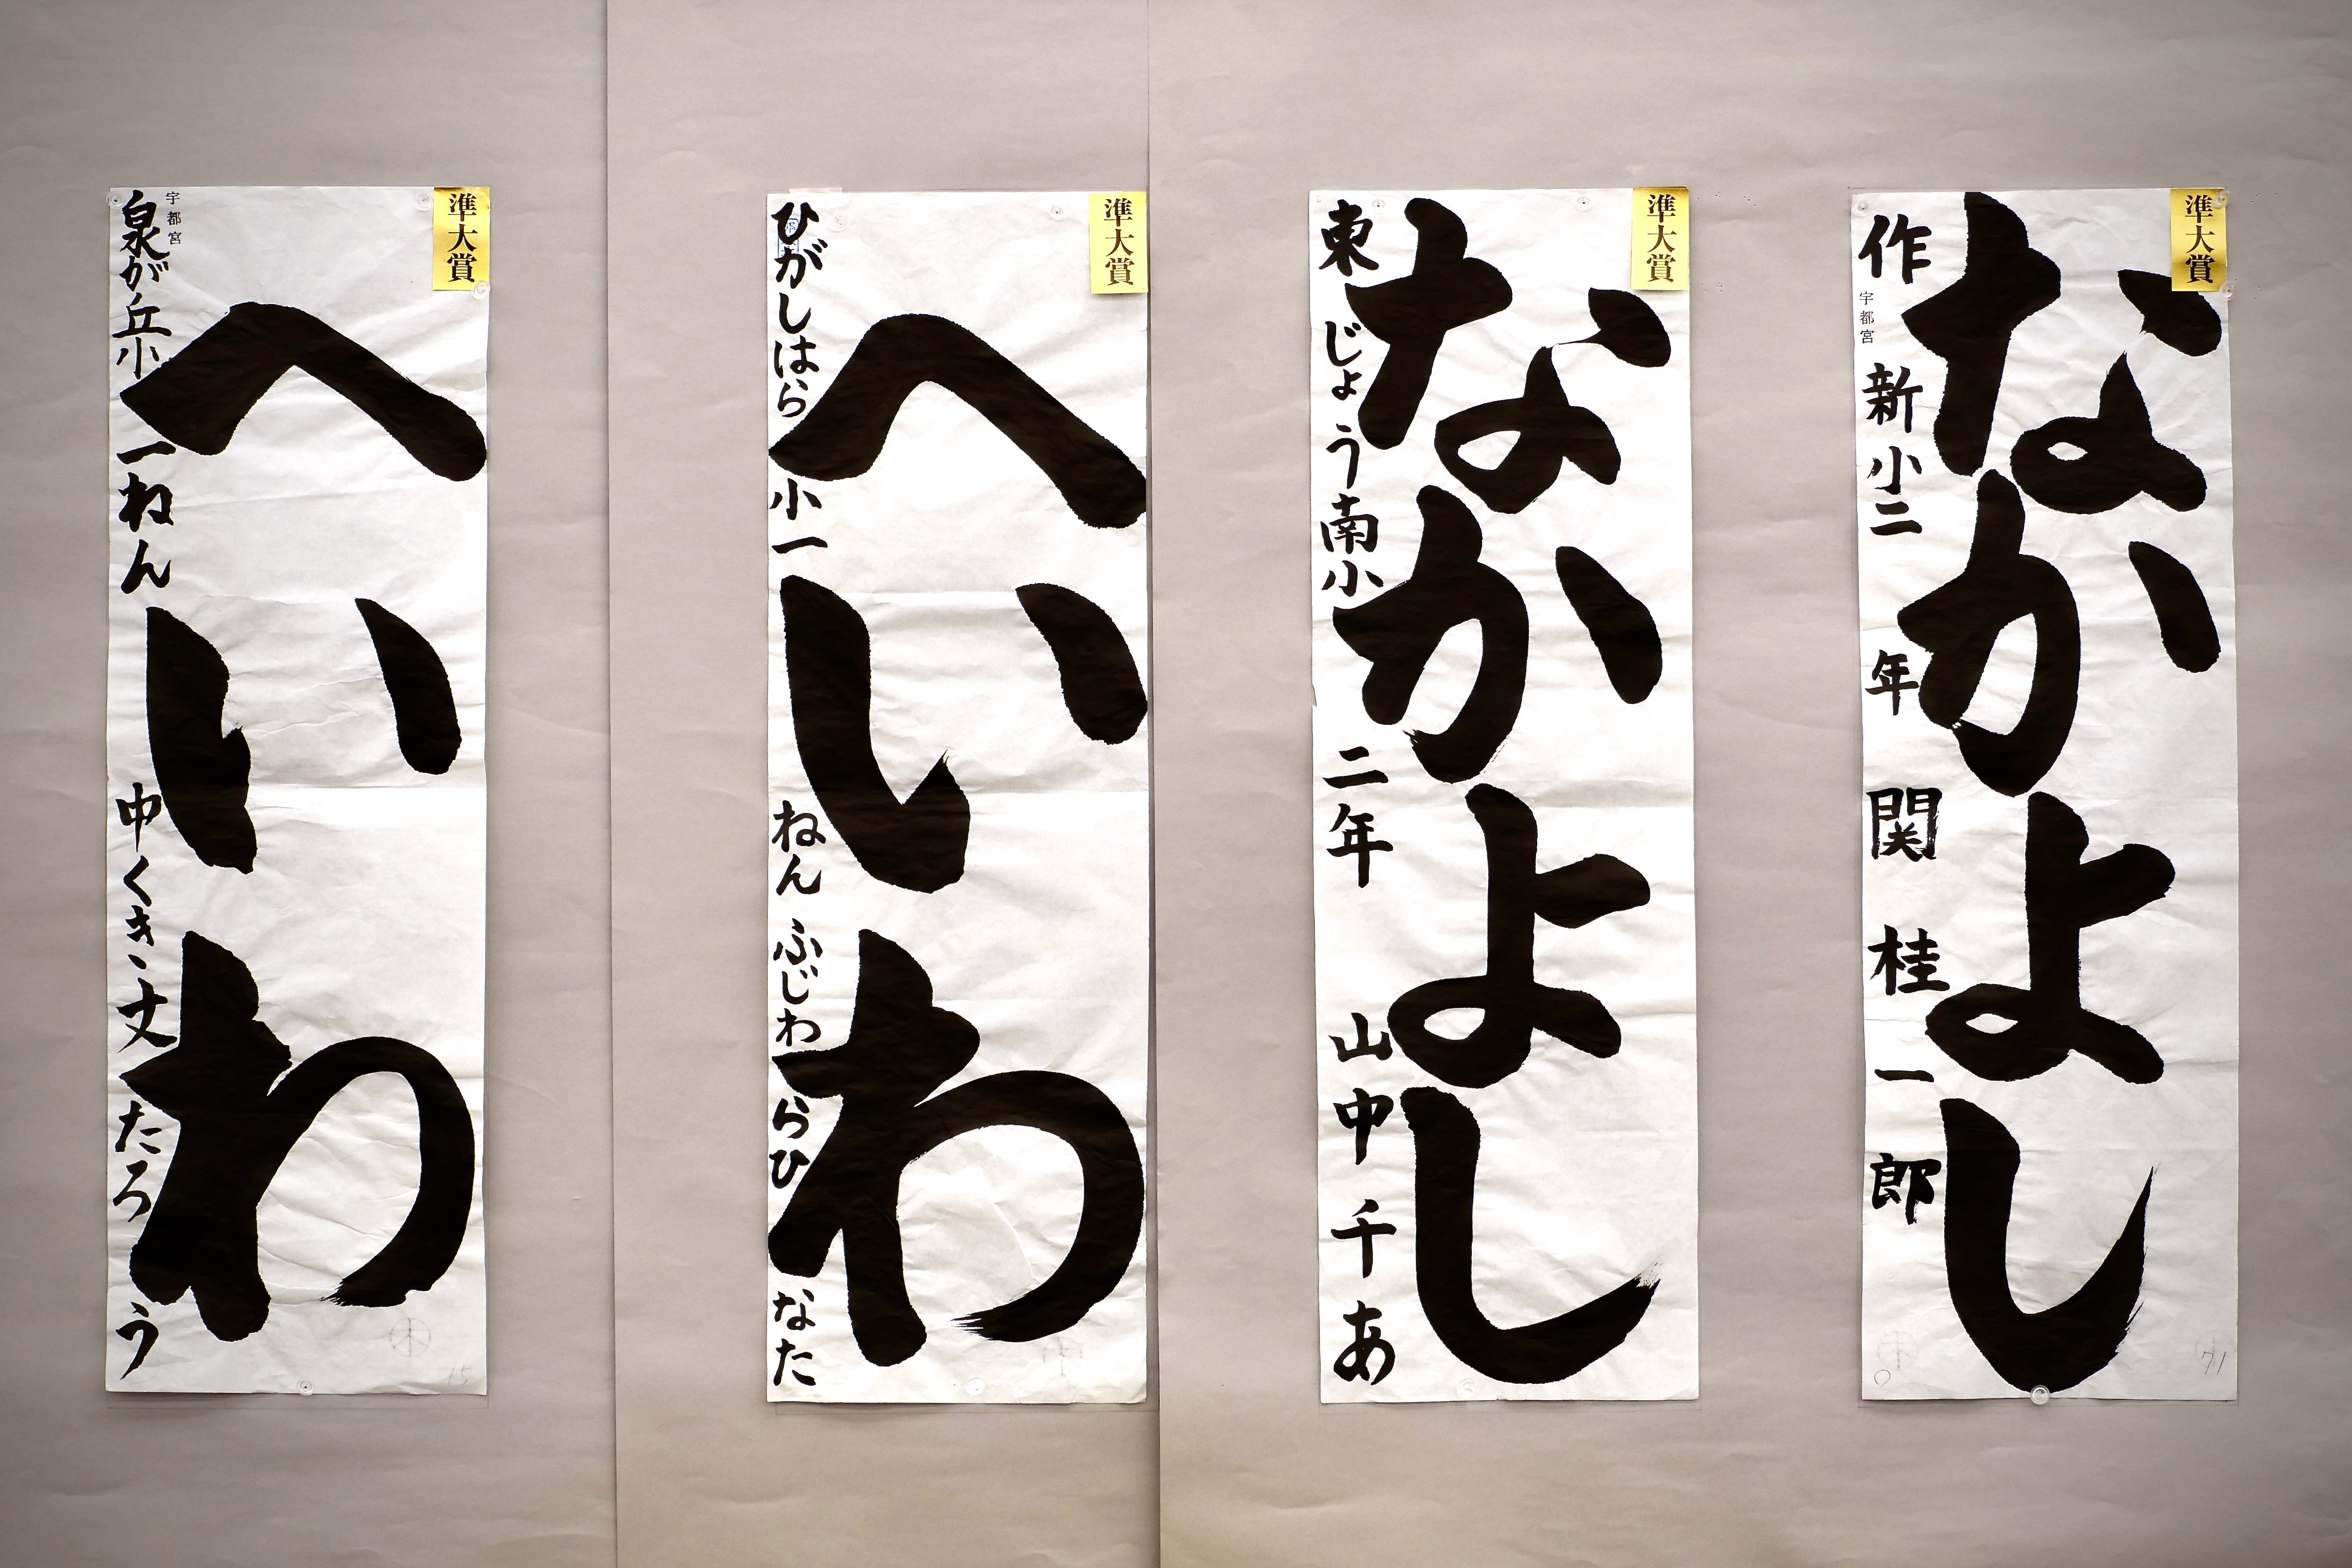 準大賞
なかよし
宇都宮
作新小二年 関桂一郎
71
準大賞
なかよし
東じょう南小 二年 山中千あ
準大賞
へいわ
ひがしはら小一ねん ふじわらひなた
準大賞
へいわ
宇都宮
泉が丘小一ねん 中くき丈たろう
15